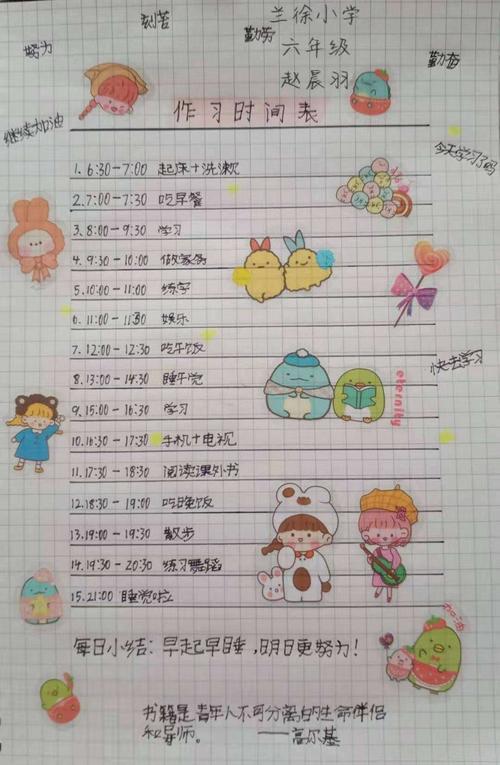 兰徐小学
刻苦
勤劳
六年级
努力
勤奋
赵晨羽
作习时间表
继续加油
今天学习了吗
1.6:30-7:00 起床+洗漱
2.7:00-7:30 吃早餐
3.8:00-9:30 学习
4.9:30-10:00 做家务
5.10:00-11:00 练字
6.11:00-11:30 娱乐
7.12:00-12:30 吃午饭
快去学习
8.13:00-14:30 睡午觉
eternity
9.15:00-16:30 学习
10.16:30-17:30 手机+电视
11.17:30-18:30 阅读课外书
12.18:30-19:00 吃晚饭
13.19:00-19:30 散步
14.19:30-20:30 练习舞蹈
15.21:00 睡觉啦
加油
每日小结:早起早睡,明日更努力!
书籍是青年人不可分离的生命伴侣
和导师。 ——高尔基